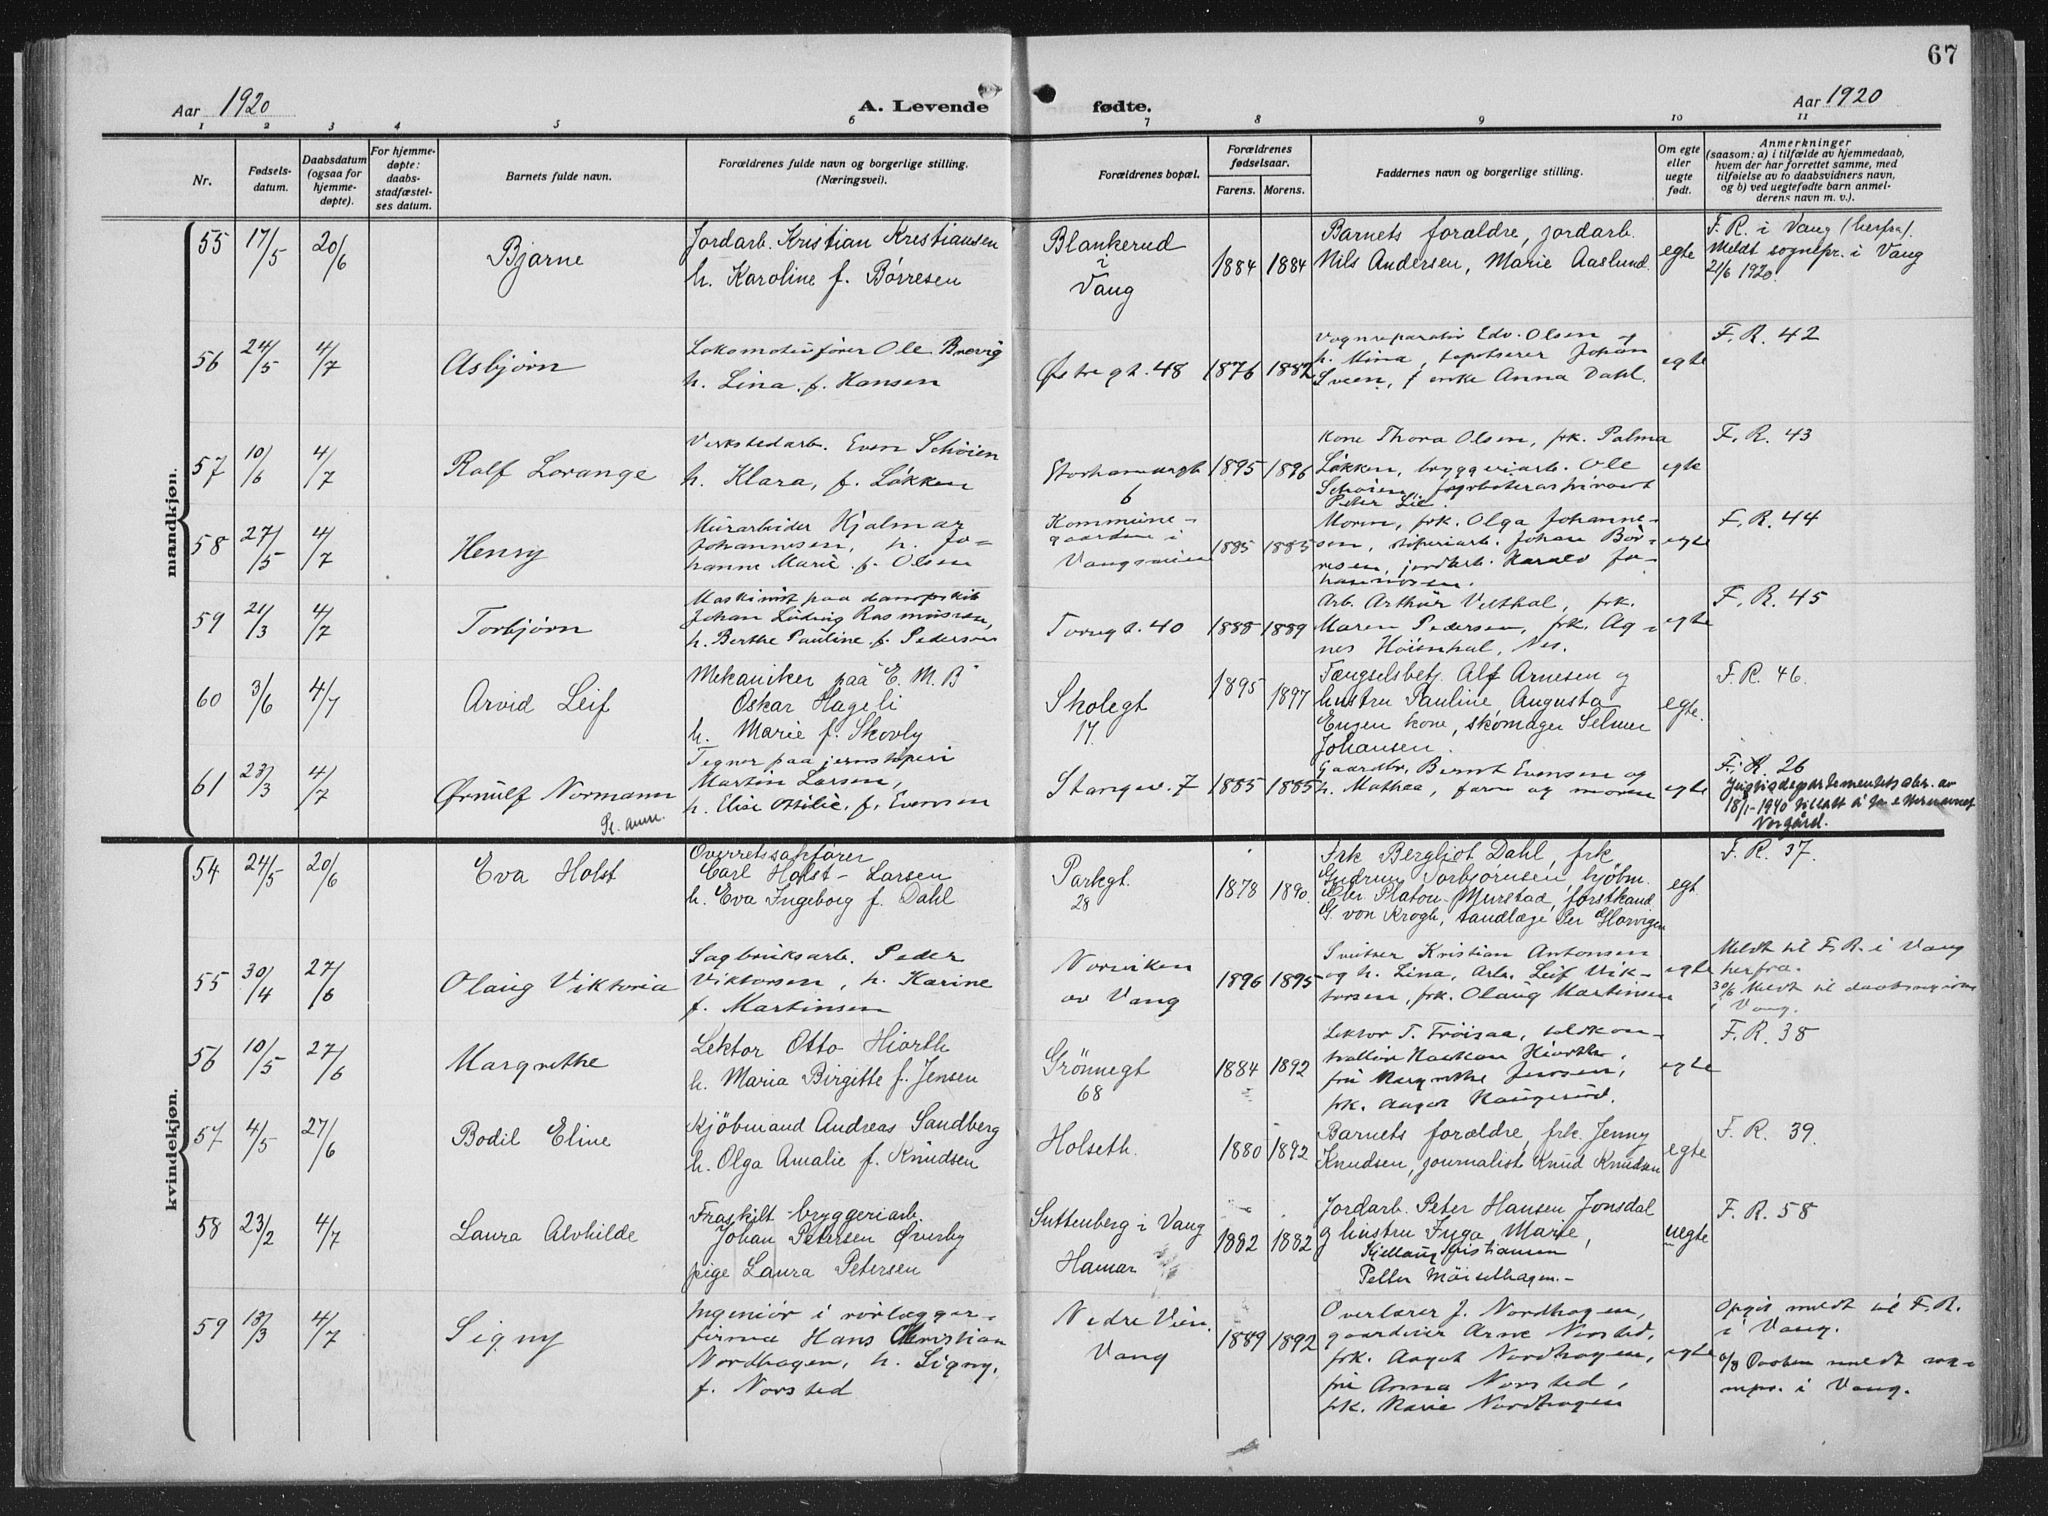 67
Aar 1920
A. Levende fødte.
Aar 1920
1 2 3 4 5 6 7 8 9 10 11
Nr.
Fødsels-
datum.
Daabsdatum
(ogsaa for
hjemme-
døpte).
For hjemme-
døpte:
daabs-
stadfæstel-
ses datum.
Barnets fulde navn.
Forældrenes fulde navn og borgerlige stilling.
(Næringsvei).
Forældrenes bopæl.
Forældrenes
fødselsaar.
Farens. Morens.
Faddernes navn og borgerlige stilling.
Om egte
eller
uegte
født.
Anmerkninger
(saasom: a) i tilfælde av hjemmedaab,
hvem der har forrettet samme, med
tilføielse av to daabsvidners navn,
og b) ved uegtefødte barn anmel-
derens navn m. v.).
mandkjøn.
55 17/5 20/6
Bjarne
Jordarb. Kristian Kristiansen
h. Karoline f. Børresen
Blankerud
i
Vang
1884 1884
Barnets forældre, jordarb.
Nils Andersen, Marie Aaslund.
egte
F. R. i Vang (herfra).
Meldt sognepr. i Vang
21/6 1920.
56 24/5 4/7
Asbjørn
Lokomotivfører Ole Brevig
h. Lina f. Hansen
Østregt. 48
1876 1882
Vognreparatør Edv. Olsen og
h. Mina, tapetserer Johan
Sveen, enke Anna Dahl.
egte
F. R. 42
57 10/6 4/7
Ralf Lorange
Verkstedarb. Even Schøien
h. Klara, f. Løkken
Storhamargt
6
1895 1896
Kone Thora Olsen, frk. Palma
Løkken, bryggeriarb. Ole
Schøien,
Peter Lie.
egte
F. R. 43
58 27/5 4/7
Henry
Murarbeider Hjalmar
Johannesen, h. Jo-
hanne Marie f. Olsen
Kommune-
gaarden i
Vangsveien
1885 1885
Moren, frk. Olga Johanne-
sen, støperiarb. Johan Bør-
resen, jordarb. Harald Jo-
hannesen.
egte
F. R. 44
59 21/3 4/7
Torbjørn
Maskinist paa dampskib
Johan Ludvig Rasmussen,
h. Berthe Pauline f. Pedersen
Torvgt. 40
1888 1889
Arb. Arthur Velthal, frk.
Maren Pedersen, frk. Ag-
nes Høienhal, Nes.
egte
F. R. 45
60 3/6 4/7
Arvid Leif
Mekaniker paa "E. M. B"
Oskar Hageli
h. Marie f. Skovly
Skolegt
17.
1895 1897
Fængselsbetj. Alf Arnesen og
hustru Pauline, Augusta
Engen kone, skomager Selmer
Johansen.
egte.
F. R. 46.
61 23/3 4/7
Ørnulf Normann
Se. anm.
Tegner paa jernstøperi
Martin Larsen,
h. Elise Ottilie f. Evensen
Stangev. 7
1885 1885
Gaardbr. Bernt Evensen og
h. Mathea, faren og moren
egte
F. R. 26
Justisdepartementets skr. av
18/1-1940 tillatt å ta etternavnet
Norgård.
kvindekjøn.
54 24/5 20/6
Eva Holst
Overretssakfører
Carl Holst-Larsen
h. Eva Ingeborg f. Dahl
Parkgt.
28
1878 1890
Frk Bergljot Dahl, frk
Gudrun Torbjørnsen, kjøbm.
Platou Mjørstad, forstkand
G. von Krogh, tandlæge Per Horvigen
egt
F. R. 37.
55 30/4 27/6
Olaug Viktoria
Sagbruksarb. Peder
Viktorsen, h. Karine
f. Martinsen
Norviken
av Vang
1896 1895
Sveitser Kristian Antonsen
og h. Lina, arb. Leif Vik-
torsen, frk. Olaug Martinsen
egte
Meldt til F. R. i Vang
herfra.
30/6 Meldt til
i Vang.
56 10/5 27/6
Margrethe
Lektor Otto Hiorth
h. Maria Birgitte f. Jensen
Grönnegt
68
1884 1892
Lektor T. Frøisaa, toldkon-
trollør Haakon Hiorth,
fru Margrethe Jensen,
frk. Aagot Haugerød.
egte
F. R. 38
57 4/5 27/6
Bodil Eline
Kjöbmand Andreas Sandberg
h. Olga Amalie f. Knudsen
Holseth.
1880 1892
Barnets forældre, frk. Jenny
Knudsen, journalist Knud Knudsen
egte
F. R. 39.
58 23/2 4/7
Laura Alvhilde
Fraskilt bryggeriarb.
Johan Petersen Øverby
pige Laura Petersen
Suttenberg i Vang
Hamar
1882 1882
Jordarb. Peter Hansen Jonsdal
g hustru Inga Marie,
Kjellaug Kristiansen
Petter Möiselhagen.-
uegte
F. R. 58
59 13/3 4/7
Signy
Ingeniør i rørlægger-
firma Hans Christian
Nordhagen, h. Signy,
f. Norsted
Nedre Vien,
Vang
1889 1892
Overlærer J. Nordhagen,
gaardeier Arne Norsted,
frk. Aagot Nordhagen,
fru Anna Norsted,
frk. Marie Nordhagen
egte
Opgit meldt til F. R.
i Vang.
Daaben meldt
i Vang.